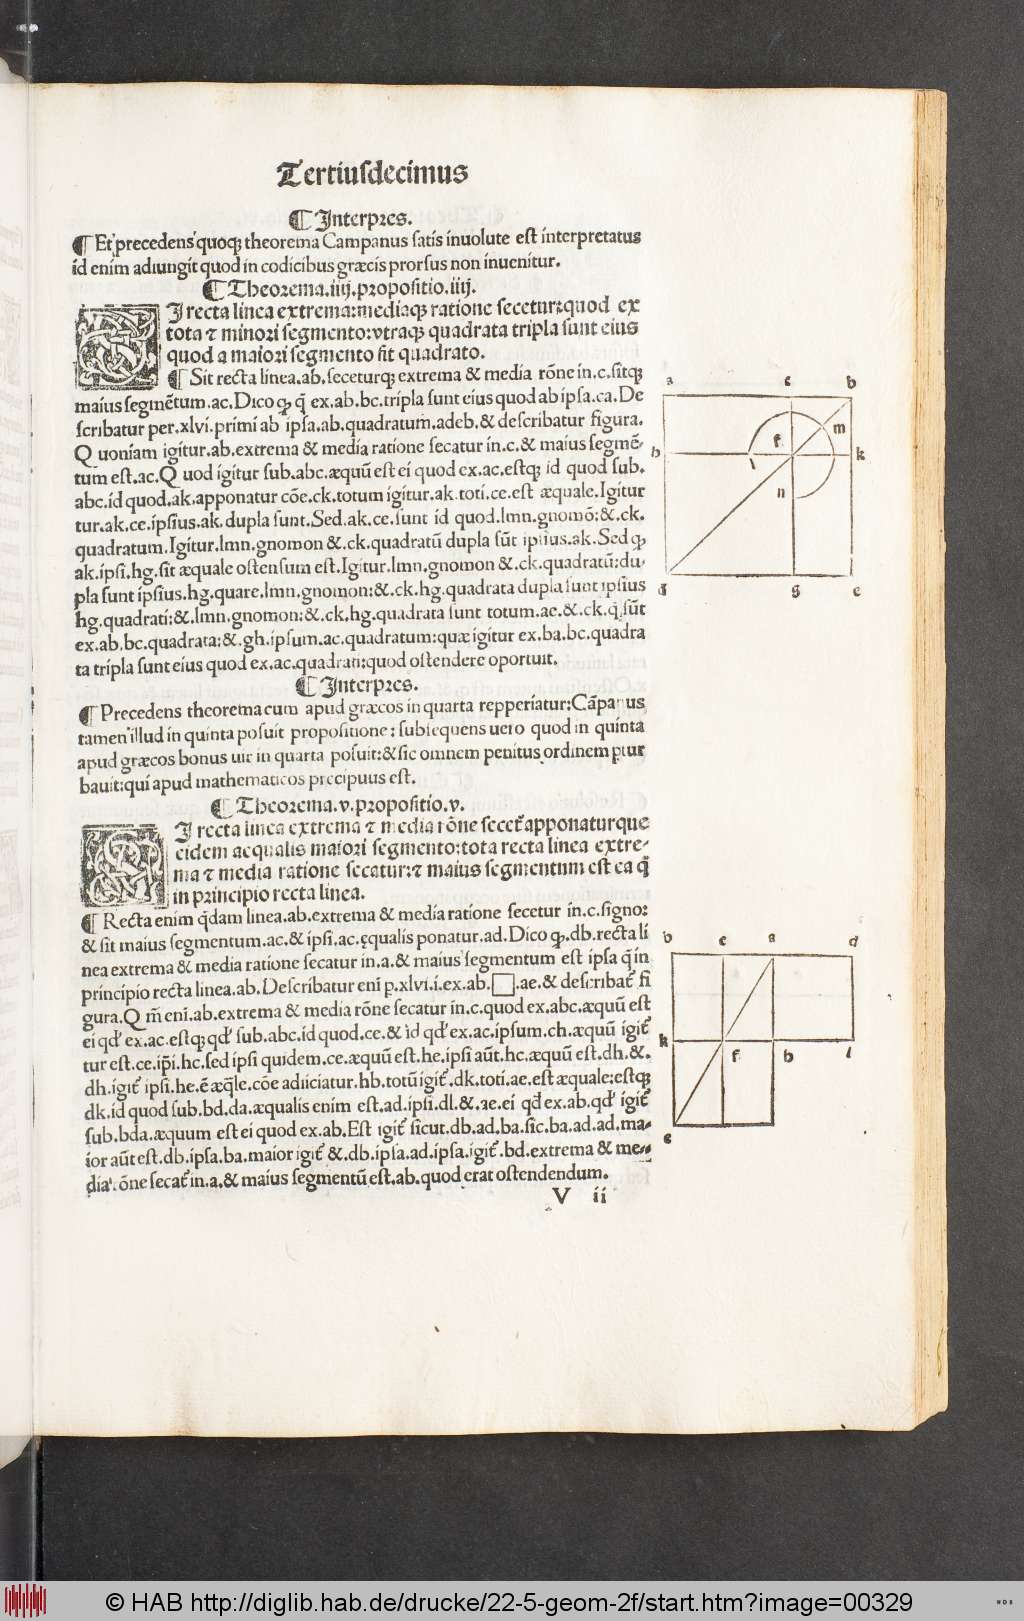 Tertiusdecimus
¶ Interpres.
¶ Et precedens quoqȝ theorema Campanus satis inuolute est interpretatus
id enim adiungit quod in codicibus græcis prorsus non inuenitur.
¶ Theorema .iiij. propositio .iiij.
SI recta linea extrema: mediaqȝ ratione secetur: quod ex
tota ⁊ minori segmento: vtraqȝ quadrata tripla sunt eius
quod a maiori segmento fit quadrato.
¶ Sit recta linea .ab. seceturqȝ extrema & media rōne in .c. sitqȝ
maius segmētum .ac. Dico qƺ q̄ ex .ab. bc. tripla sunt eius quod ab ipsa .ca. De
scribatur per .xlvi. primi ab ipsa .ab. quadratum .adeb. & describatur figura.
Quoniam igitur .ab. extrema & media ratione secatur in .c. & maius segmē-
tum est .ac. Quod igitur sub .abc. æquū est ei quod ex .ac. estqȝ id quod sub.
abc. id quod .ak. apponatur cōe .ck. totum igitur .ak. toti .ce. est æquale. Igitur
tur .ak. ce. ipsius .ak. dupla sunt. Sed .ak. ce. sunt id quod .lmn. gnomō: & .ck.
quadratum. Igitur .lmn. gnomon & .ck. quadratū dupla sūt ipsius .ak. Sed qƺ
ak. ipsi .hg. sit æquale ostensum est. Igitur .lmn. gnomon & .ck. quadratū: du-
pla sunt ipsius .hg. quare .lmn. gnomon: & .ck. hg. quadrata dupla sunt ipsius
hg. quadrati: & .lmn. gnomon: & .ck. hg. quadrata sunt totum .ae. & .ck. q̄ sūt
ex .ab. bc. quadrata: & .gh. ipsum .ac. quadratum: quæ igitur ex .ba. bc. quadra
ta tripla sunt eius quod ex .ac. quadrati: quod ostendere oportuit.
¶ Interpres.
¶ Precedens theorema cum apud græcos in quarta repperiatur: Cāpanus
tamen illud in quinta posuit propositione: subsequens uero quod in quinta
apud græcos bonus uir in quarta posuit: & sic omnem penitus ordinem ptur
bauit: qui apud mathematicos precipuus est.
¶ Theorema .v. propositio .v.
SI recta linea extrema ⁊ media rōne secet̄ apponaturque
eidem aequalis maiori segmento: tota recta linea extre-
ma ⁊ media ratione secatur: ⁊ maius segmentum est ea q̄
in principio recta linea.
¶ Recta enim q̄dam linea .ab. extrema & media ratione secetur in .c. signo:
& sit maius segmentum .ac. & ipsi .ac. ęqualis ponatur .ad. Dico qƺ .db. recta li
nea extrema & media ratione secatur in .a. & maius segmentum est ipsa q̄ in
principio recta linea .ab. Describatur enī p .xlvi. i. ex .ab. □ .ae. & describat̄ fi
gura. Qm̄ enī .ab. extrema & media rōne secetur in .c. quod ex .abc. æquū est
ei qd' ex .ac. estqȝ qd' sub .abc. id quod .ce. & id qd' ex .ac. ipsum .ch. æquū igit̄
tur est .ce. ip̄i .hc. sed ipsi quidem .ce. æquū est .he. ipsi aūt .hc. æquū est .dh. &.
dh. igit̄ ipsi .he. ē æq̄le. cōe adiiciatur .hb. totū igit̄ .dk. toti .ae. est æquale: estqȝ
dk. id quod sub .bd. da. æqualis enim est .ad. ipsi .dl. & .ae. ei qd' ex .ab. qd' igit̄
sub .bda. æquum est ei quod ex .ab. Est igit̄ sicut .db. ad .ba. sic .ba. ad .ad. ma-
ior aūt est .db. ipsa .ba. maior igit̄ & .db. ipsa .ad. ipsa .igit̄ .bd. extrema & me-
dia rōne secat̄ in .a. & maius segmentū est .ab. quod erat ostendendum.
V ii
a c b
f m
b l k
n
d g e
b c a d
k f h l
e
© HAB http://diglib.hab.de/drucke/22-5-geom-2f/start.htm?image=00329